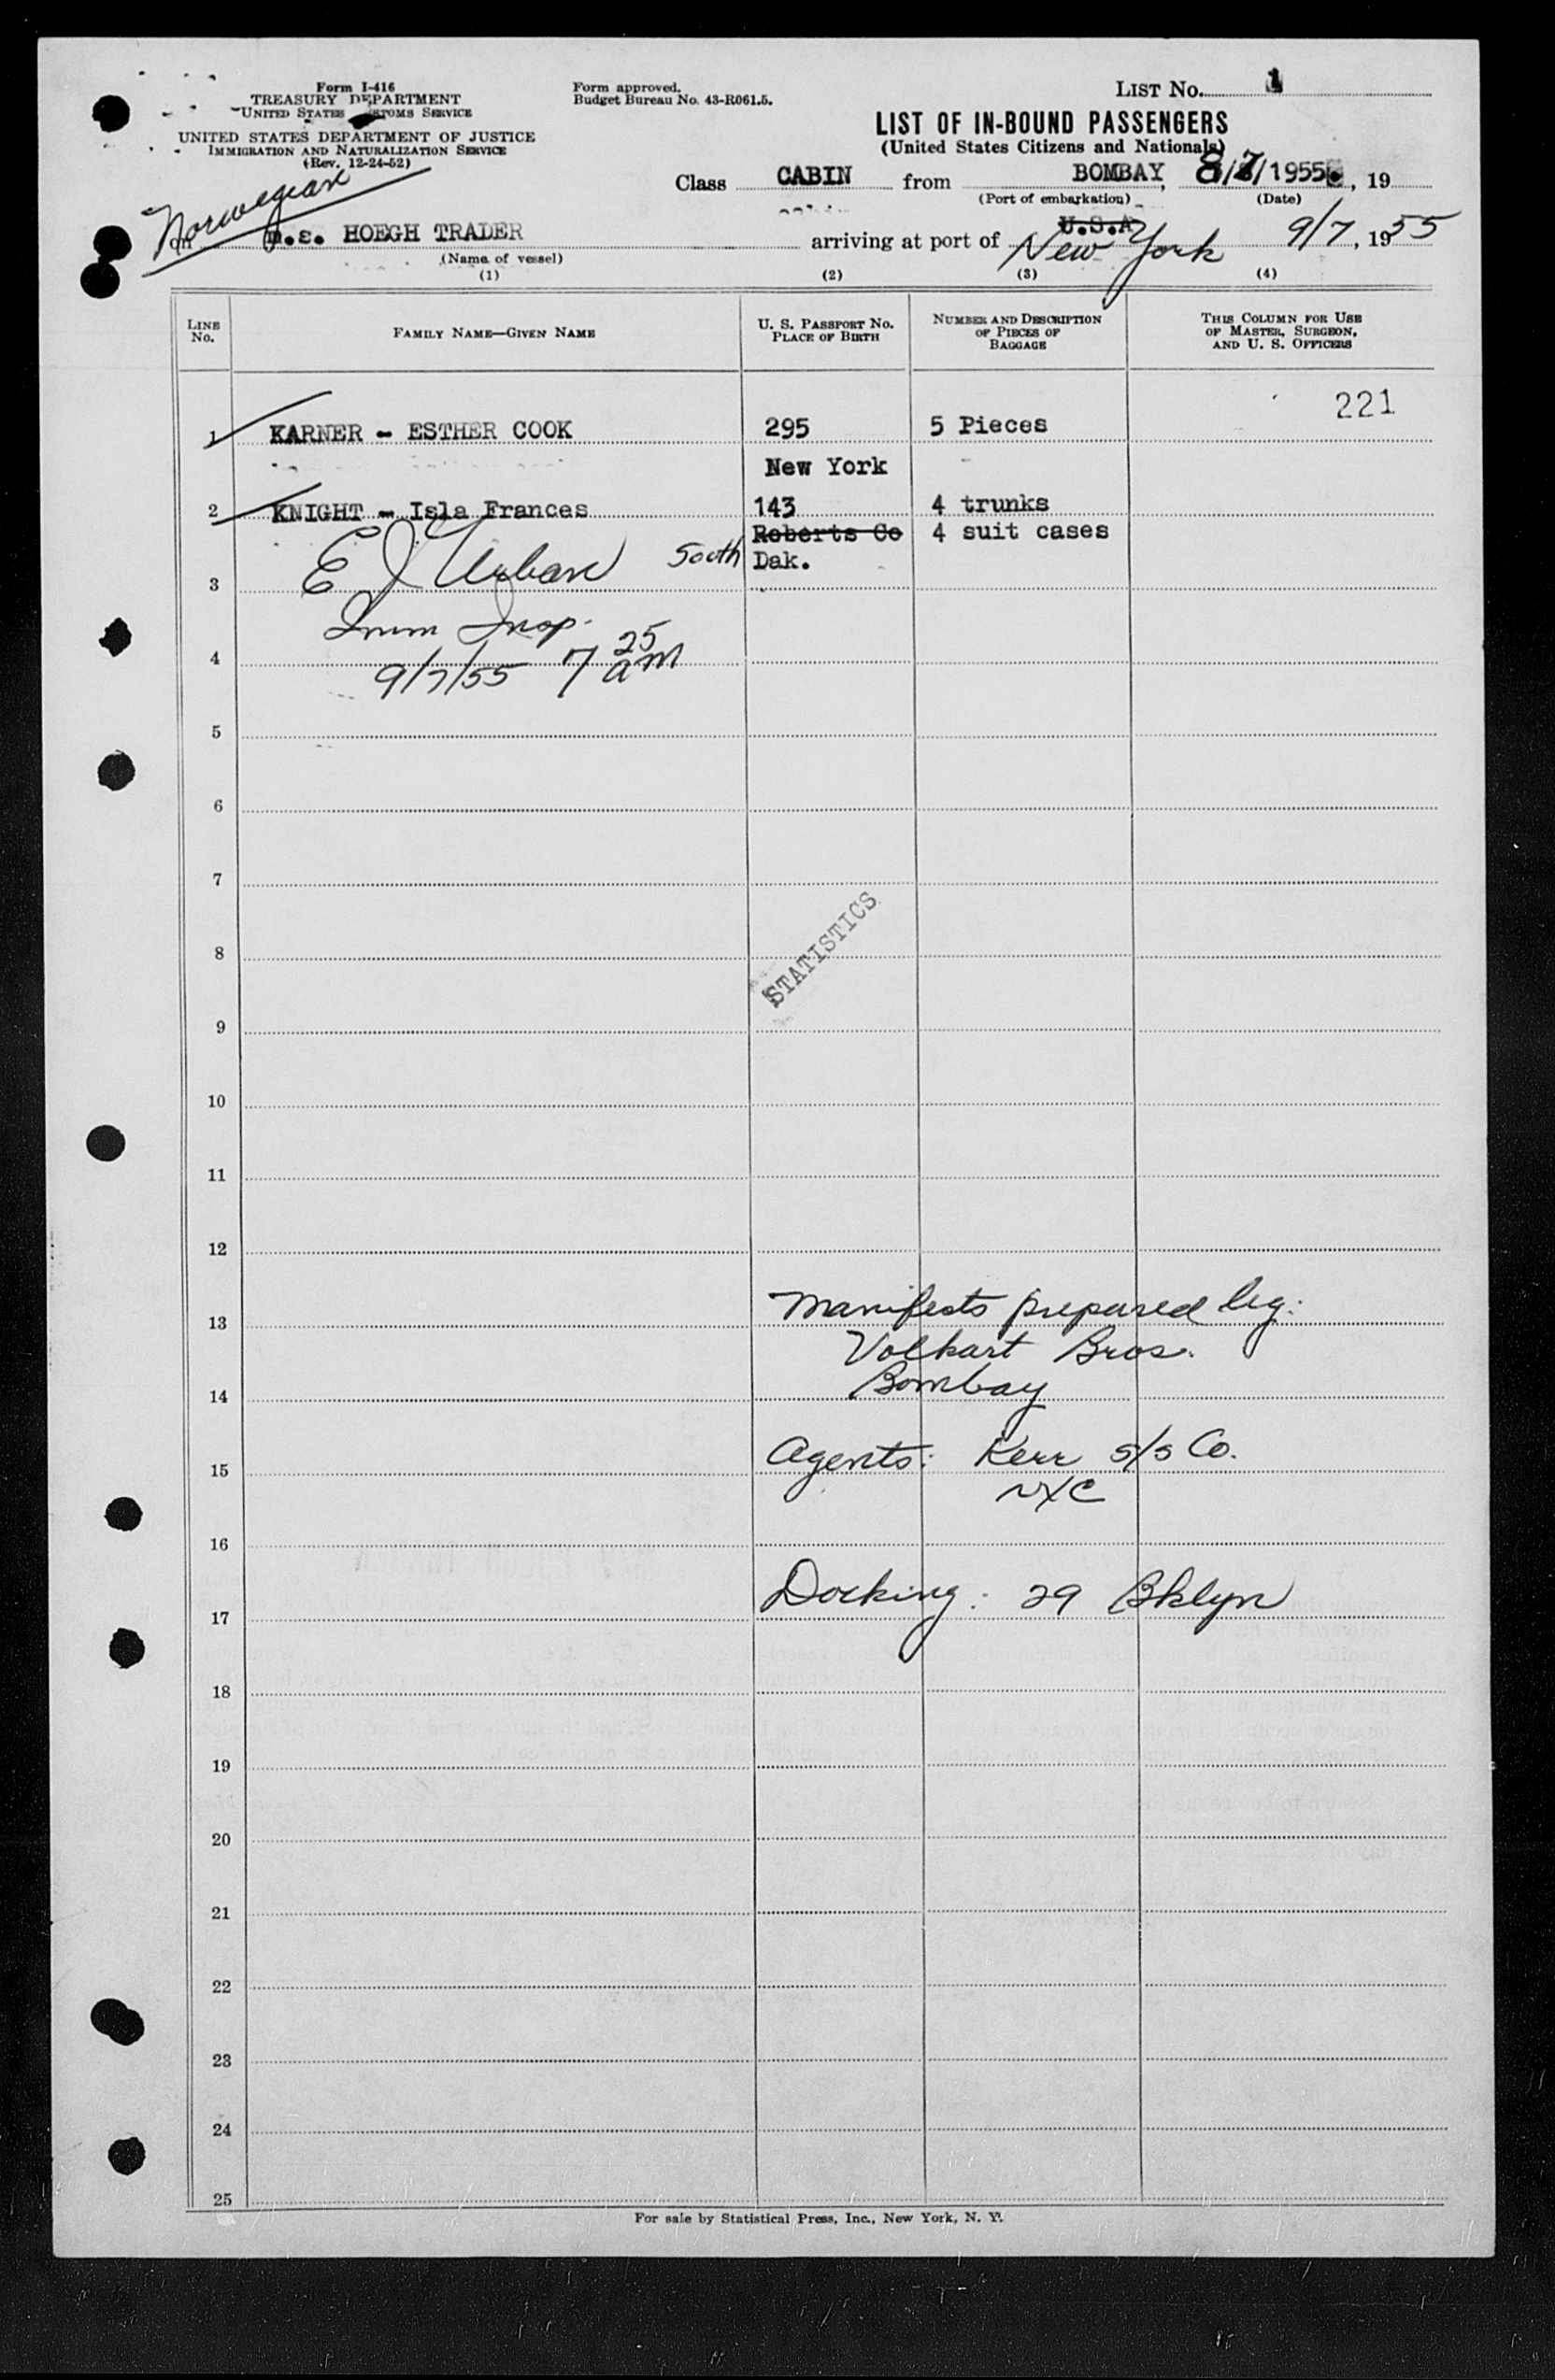 Form I-416
TREASURY DEPARTMENT
UNITED STATES CUSTOMS SERVICE
UNITED STATES DEPARTMENT OF JUSTICE
IMMIGRATION AND NATURALIZATION SERVICE
(Rev. 12-24-52)
Form approved.
Budget Bureau No. 43-R061.5.
LIST No. 1
LIST OF IN-BOUND PASSENGERS
(United States Citizens and Nationals)
Class CABIN from BOMBAY, 8/7/1955, 19
(Port of embarkation) (Date)
Norwegian
on m.s. HOEGH TRADER arriving at port of U.S.A New York 9/7, 1955
(Name of vessel)
(1) (2) (3) (4)
LINE No. FAMILY NAME—GIVEN NAME U. S. PASSPORT No. PLACE OF BIRTH NUMBER AND DESCRIPTION OF PIECES OF BAGGAGE THIS COLUMN FOR USE OF MASTER, SURGEON, AND U. S. OFFICERS
221
1 KARNER - ESTHER COOK 295 5 Pieces
New York
2 KNIGHT - Isla Frances 143 4 trunks
Roberts Co 4 suit cases
South Dak.
3 E J Urban
Imm Insp.
4 9/7/55 7 25 am
5
6
7
8
STATISTICS
9
10
11
12
13 Manifests prepared by:
Volkart Bros.
14 Bombay
15 Agents: Kerr S/S Co.
NYC
16
17 Docking: 29 Bklyn
18
19
20
21
22
23
24
25
For sale by Statistical Press, Inc., New York, N. Y.